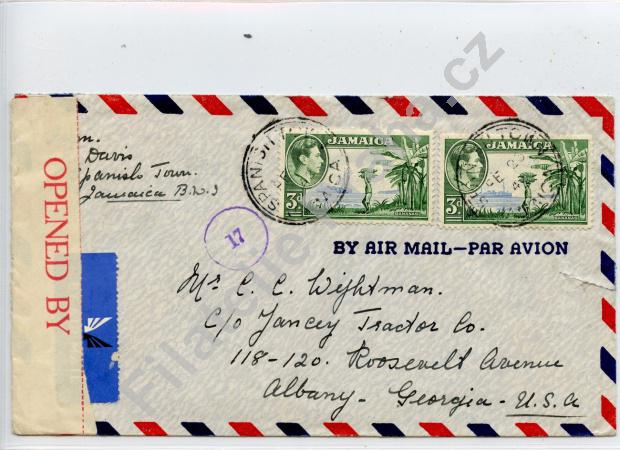 m.
Davis
Spanish Town.
Jamaica B.W.I
OPENED BY
17
SPANISH TOWN
JAMAICA
3D
BANANAS
JAMAICA
3D
BANANAS
BY AIR MAIL—PAR AVION
Mr C. C. Wightman.
c/o Yancey Tractor Co.
118-120. Roosevelt Avenue
Albany - Georgia - U.S.A